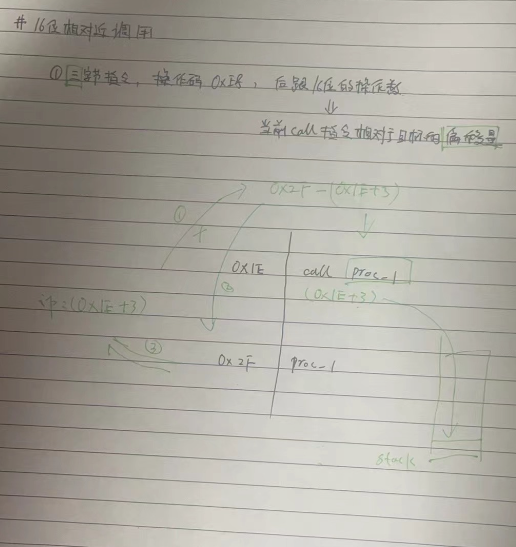 # 16位相对近调用
① 三字节指令，操作码 0xE8，后跟16位的操作数
⇓
当前call指令相对于目标的偏移量
0x2F-(0x1E+3)
①
+
0x1E call proc_1
②
ip:(0x1E+3) (0x1E+3)
③
0x2F proc_1
stack